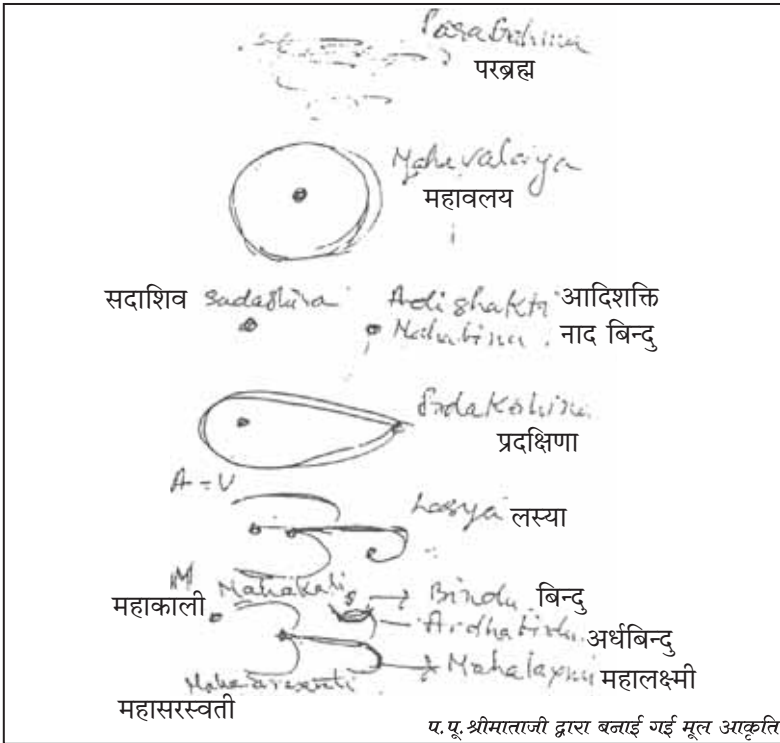 ParaBrhma
परब्रह्म
Mahavalaiya
महावलय
सदाशिव Sadashiva Adishakti आदिशक्ति
नाद बिन्दु
Prdakshina
प्रदक्षिणा
A - U
Lasya लस्या
M Mahakali Bindu बिन्दु
महाकाली
Ardhabindu अर्धबिन्दु
Mahalaxmi महालक्ष्मी
महासरस्वती
प.पू.श्रीमाताजी द्वारा बनाई गई मूल आकृति